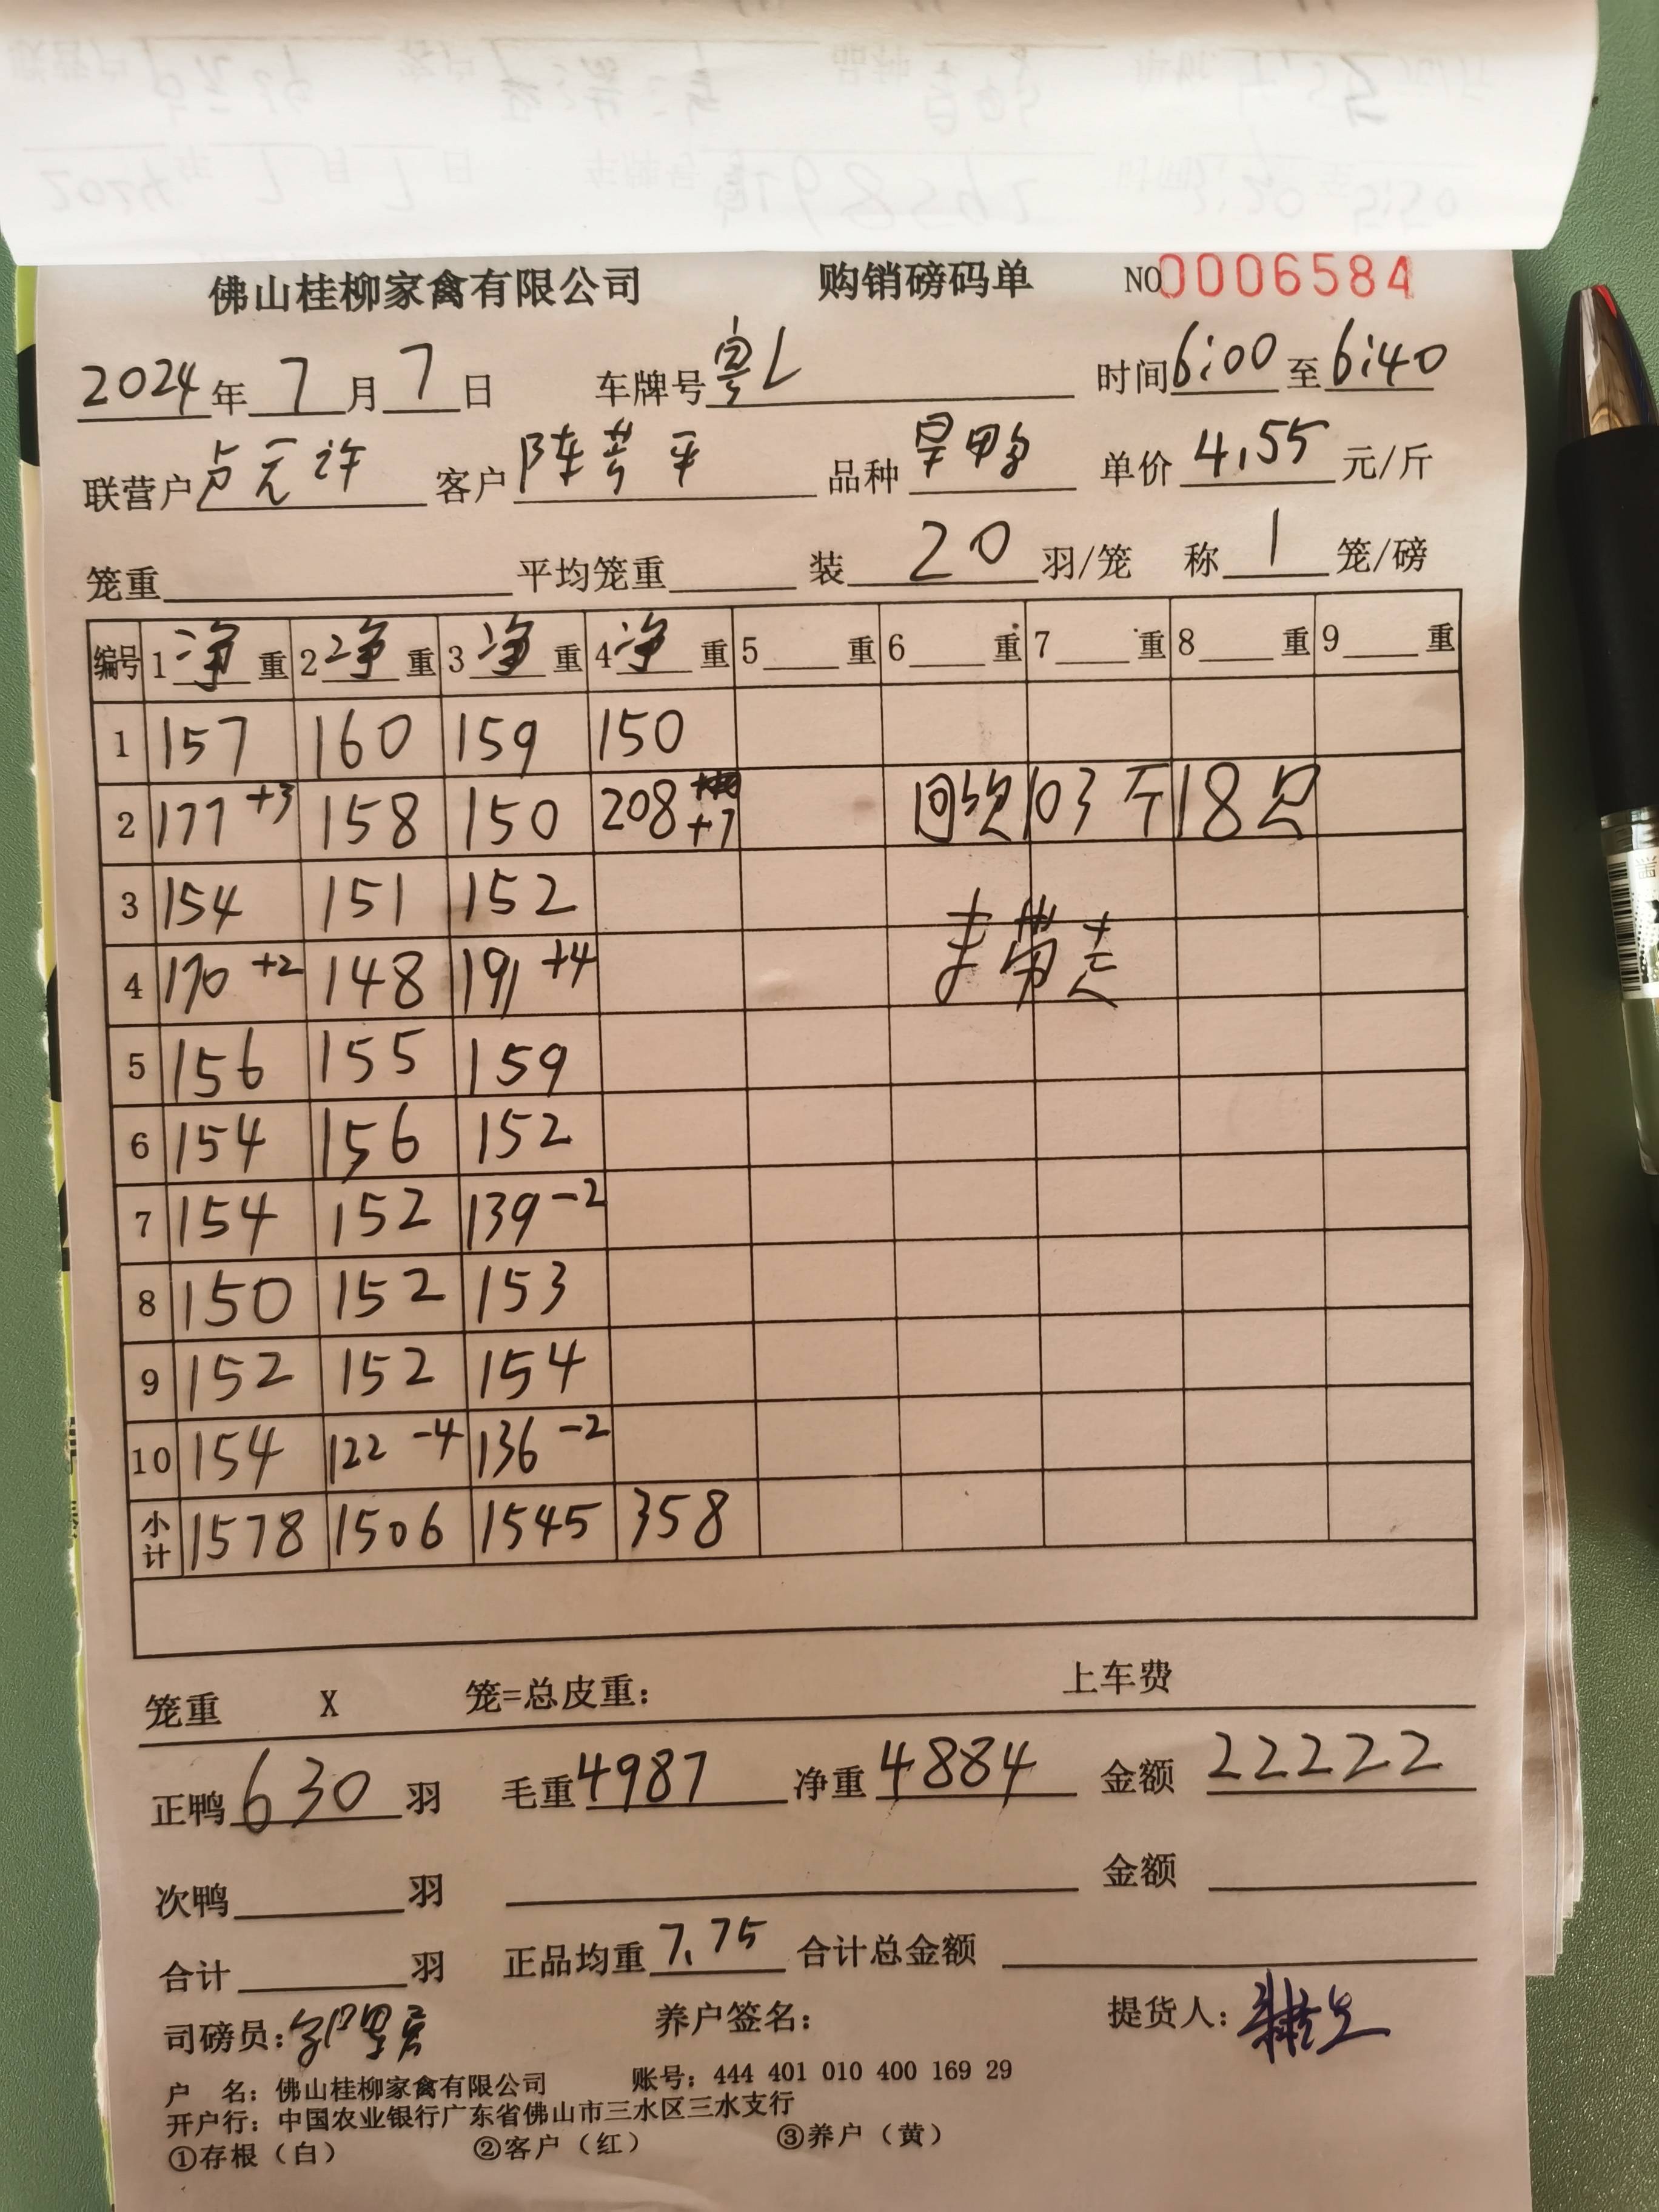 佛山桂柳家禽有限公司 购销磅码单 NO 0006584
2024年 7月 7日 车牌号 粤L 时间 6:00 至 6:40
联营户 卢元许 客户 陈 平 品种 旱鸭 单价 4.55 元/斤
笼重 平均笼重 装 20 羽/笼 称 1 笼/磅
编号 1 净 重 2 净 重 3 净 重 4 净 重 5 重 6 重 7 重 8 重 9 重
1 157 160 159 150
2 177 +3 158 150 208 +7 回 103斤 18只
3 154 151 152
4 170 +2 148 191 +4 未带走
5 156 155 159
6 154 156 152
7 154 152 139 -2
8 150 152 153
9 152 152 154
10 154 122 -4 136 -2
小计 1578 1506 1545 358
笼重 X 笼=总皮重: 上车费
正鸭 630 羽 毛重 4987 净重 4884 金额 22222
次鸭 羽 金额
合计 羽 正品均重 7.75 合计总金额
司磅员: 养户签名: 提货人:
户 名: 佛山桂柳家禽有限公司 账号: 444 401 010 400 169 29
开户行: 中国农业银行广东省佛山市三水区三水支行
①存根（白） ②客户（红） ③养户（黄）